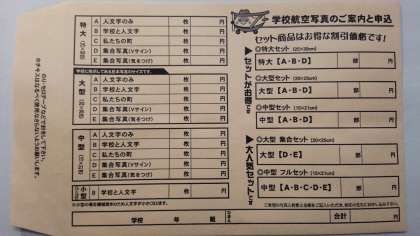 学校航空写真のご案内と申込
セット商品はお得な割引価格です!
特大
A 人文字のみ 枚 円
B 学校と人文字 枚 円
C 私たちの町 枚 円
D 集合写真(Vサイン) 枚 円
E 集合写真(気をつけ) 枚 円
大型
A 人文字のみ 枚 円
B 学校と人文字 枚 円
C 私たちの町 枚 円
D 集合写真(Vサイン) 枚 円
E 集合写真(気をつけ) 枚 円
中型
A 人文字のみ 枚 円
B 学校と人文字 枚 円
C 私たちの町 枚 円
D 集合写真(Vサイン) 枚 円
E 集合写真(気をつけ) 枚 円
小型
B 学校と人文字 枚 円
▶セットがお得です
◎特大セット
特大【A・B・D】 部 円
◎大型セット
大型【A・B・D】 部 円
◎中型セット
中型【A・B・D】 部 円
▶大人気セットです
◎大型 集合セット
大型【D・E】 部 円
◎中型 フルセット
中型【A・B・C・D・E】 部 円
学校 年 組
合計 円